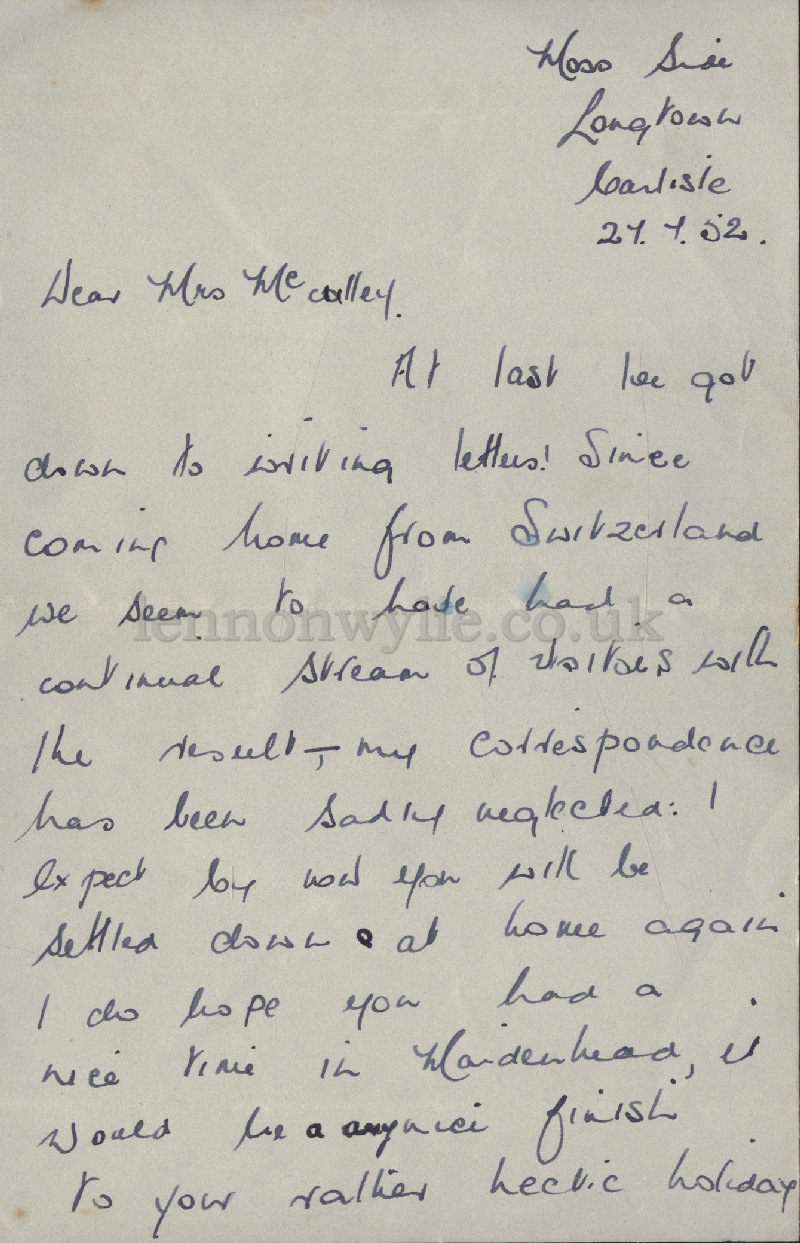 Moss Side
Longtown
Carlisle
27.7.52.
Dear Mrs McCulley.
At last I've got
down to writing letters! Since
coming home from Switzerland
we seem to have had a
lennonwylie.co.uk
continual stream of visitors with
the result, – my correspondence
has been sadly neglected. I
expect by now you will be
settled down at home again
I do hope you had a
nice time in Maidenhead, it
would be a nice finish
to your rather hectic holiday